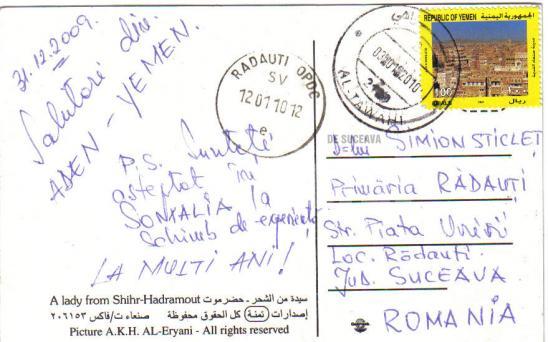 31.12.2009.
Salutări din
ADEN - YEMEN.
P.S. Sunteți
așteptat în
SOMALIA la
schimb de experiență
LA MULTI ANI!
A lady from Shihr-Hadramout سيدة من الشحر - حضرموت
إصدارات (ثمنة) كل الحقوق محفوظة صنعاء ت/فاكس ٢٠٦١٥٣
Picture A.K.H. AL-Eryani - All rights reserved
RADAUTI OPDC
SV
12 01 10 12
e
AL-TAWAHI
REPUBLIC OF YEMEN الجمهورية اليمنية
100 ريال
DE SUCEAVA
D-lui SIMION STICLEȚ
Primăria RĂDĂUȚI
Str. Piata Unirii
Loc. Rădăuti
Jud. SUCEAVA
ROMANIA